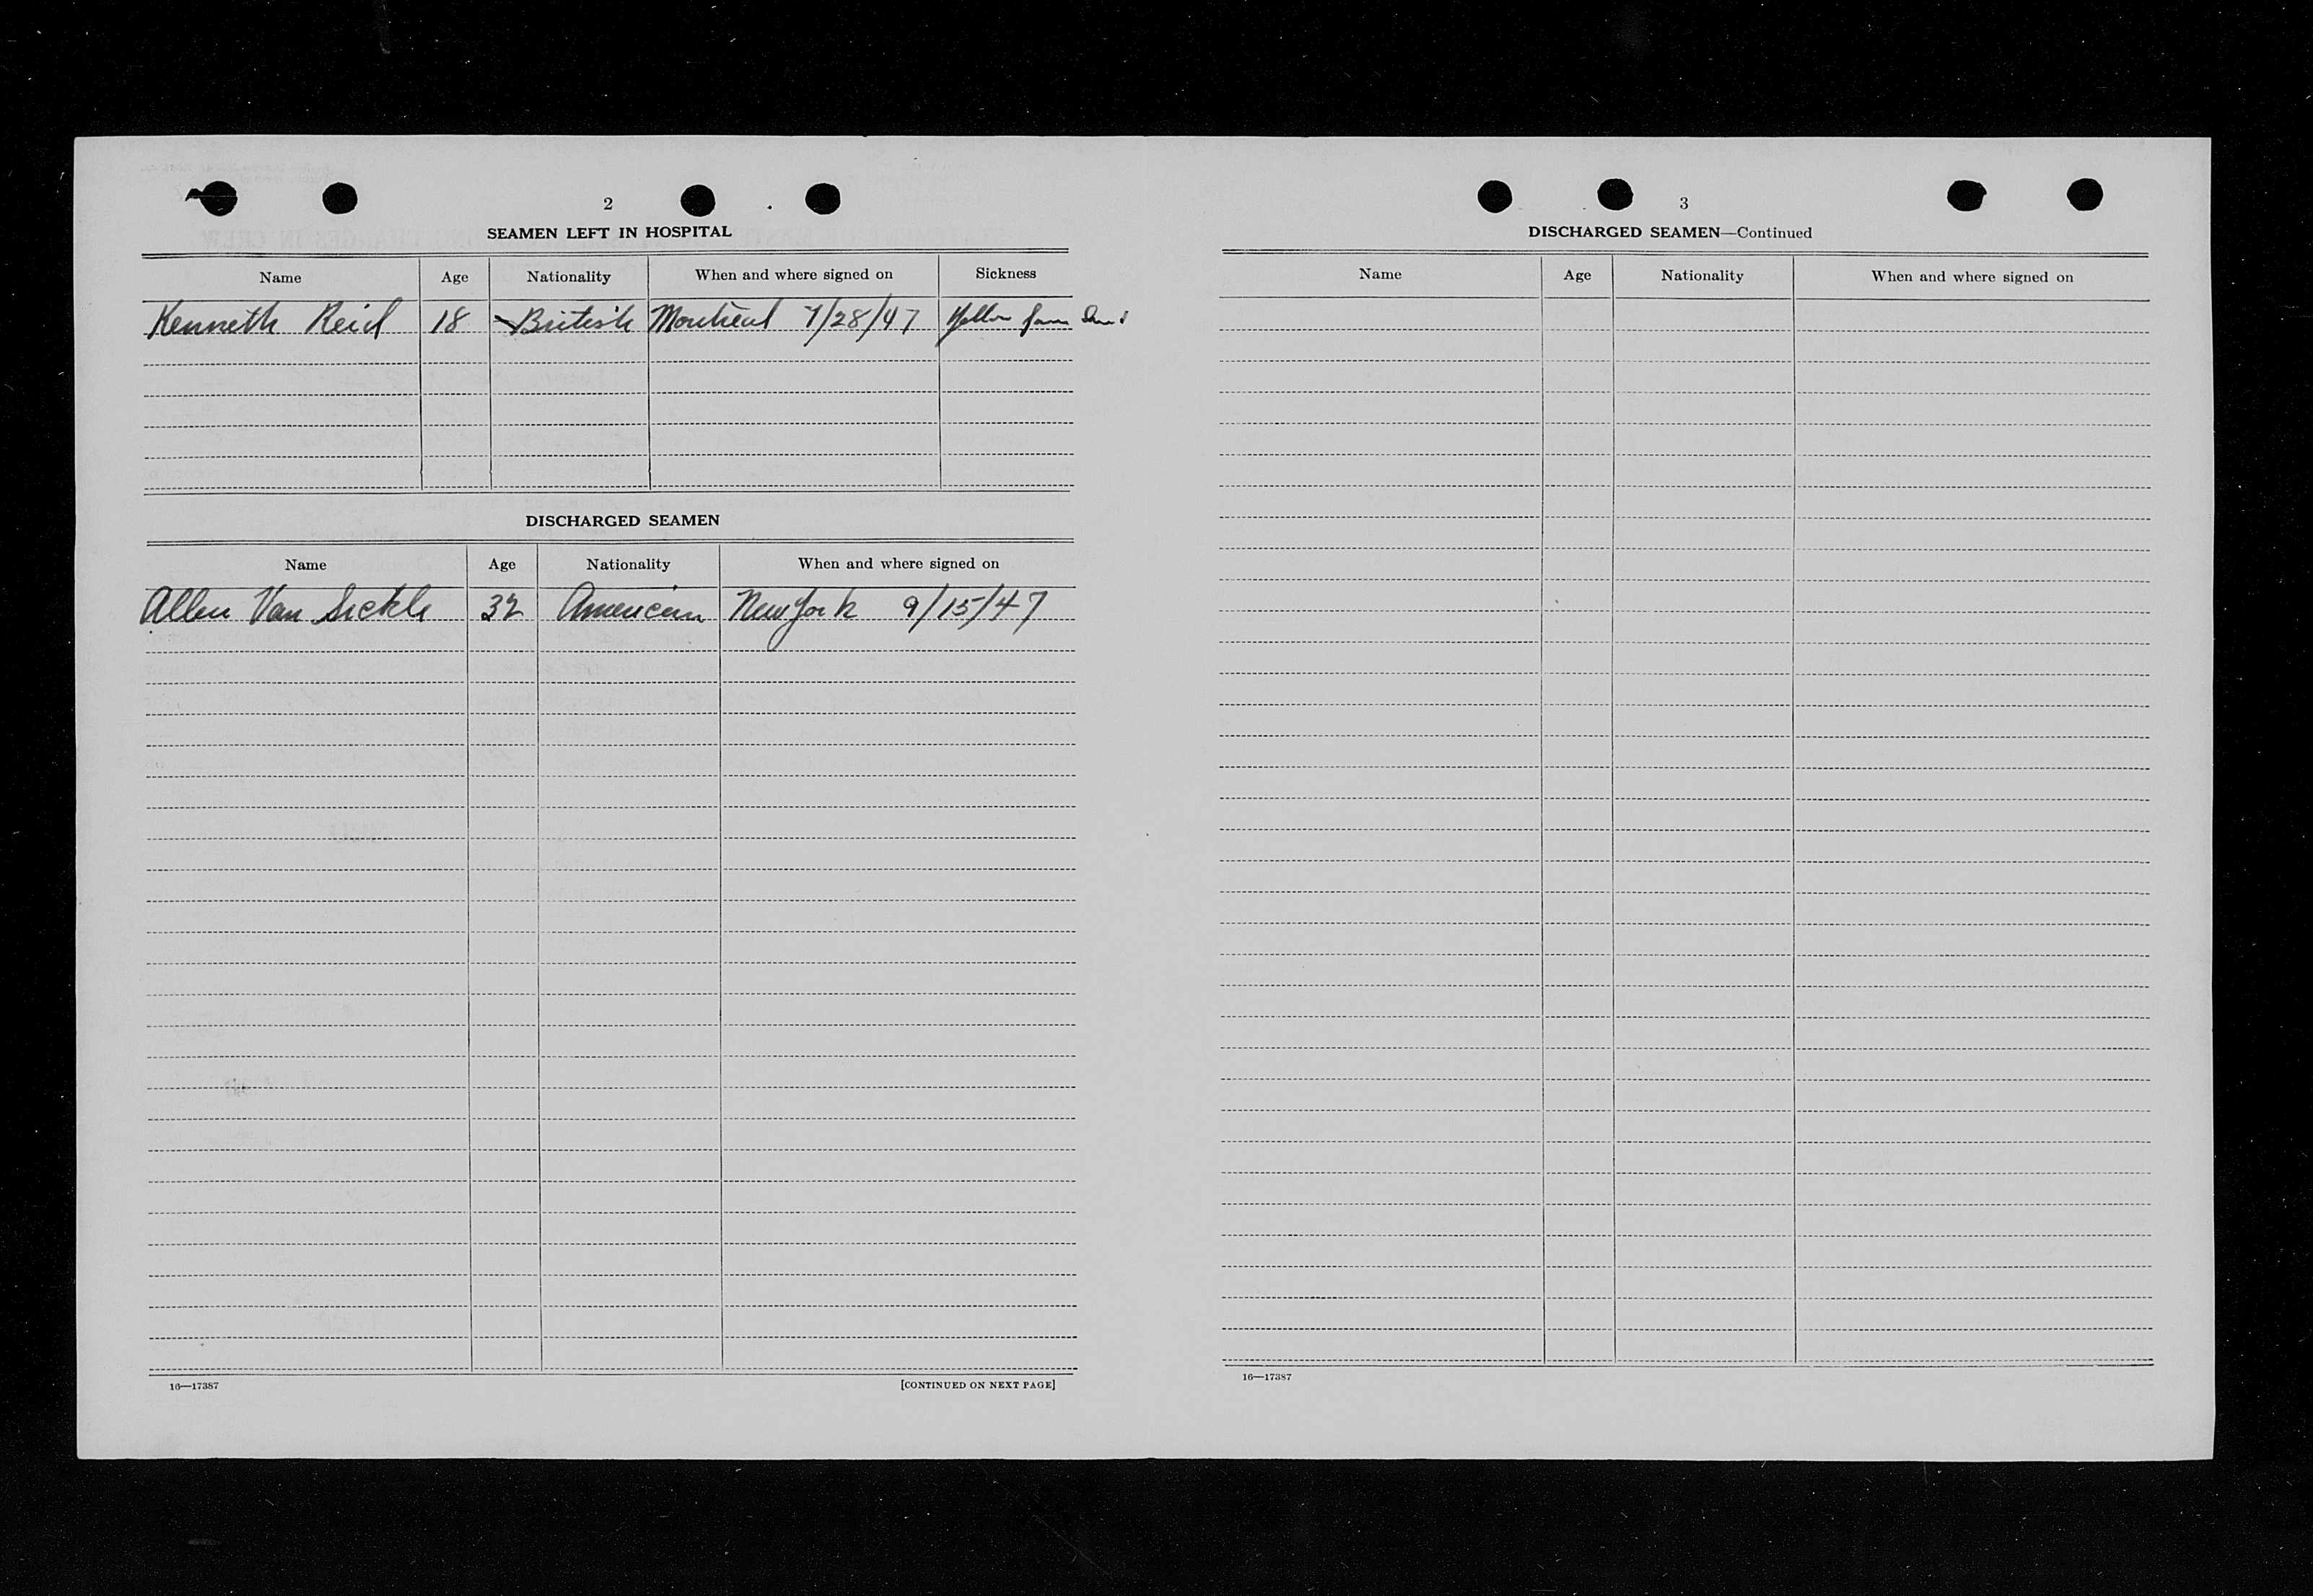 2
SEAMEN LEFT IN HOSPITAL
Name Age Nationality When and where signed on Sickness
Kenneth Reid 18 British Montreal 7/28/47
DISCHARGED SEAMEN
Name Age Nationality When and where signed on
Allen Van Sickle 32 American New York 9/15/47
16—17387 [CONTINUED ON NEXT PAGE]
3
DISCHARGED SEAMEN—Continued
Name Age Nationality When and where signed on
16—17387